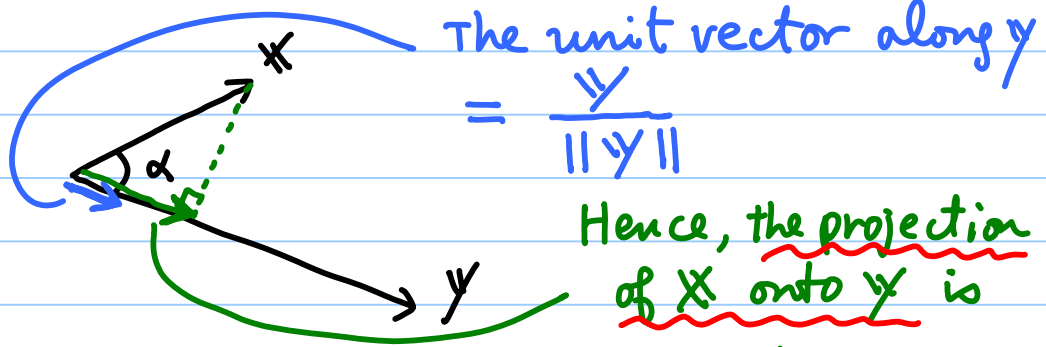 𝕏
The unit vector along 𝕐
= 𝕐 / ||𝕐||
α
Hence, the projection
of 𝕏 onto 𝕐 is
𝕐